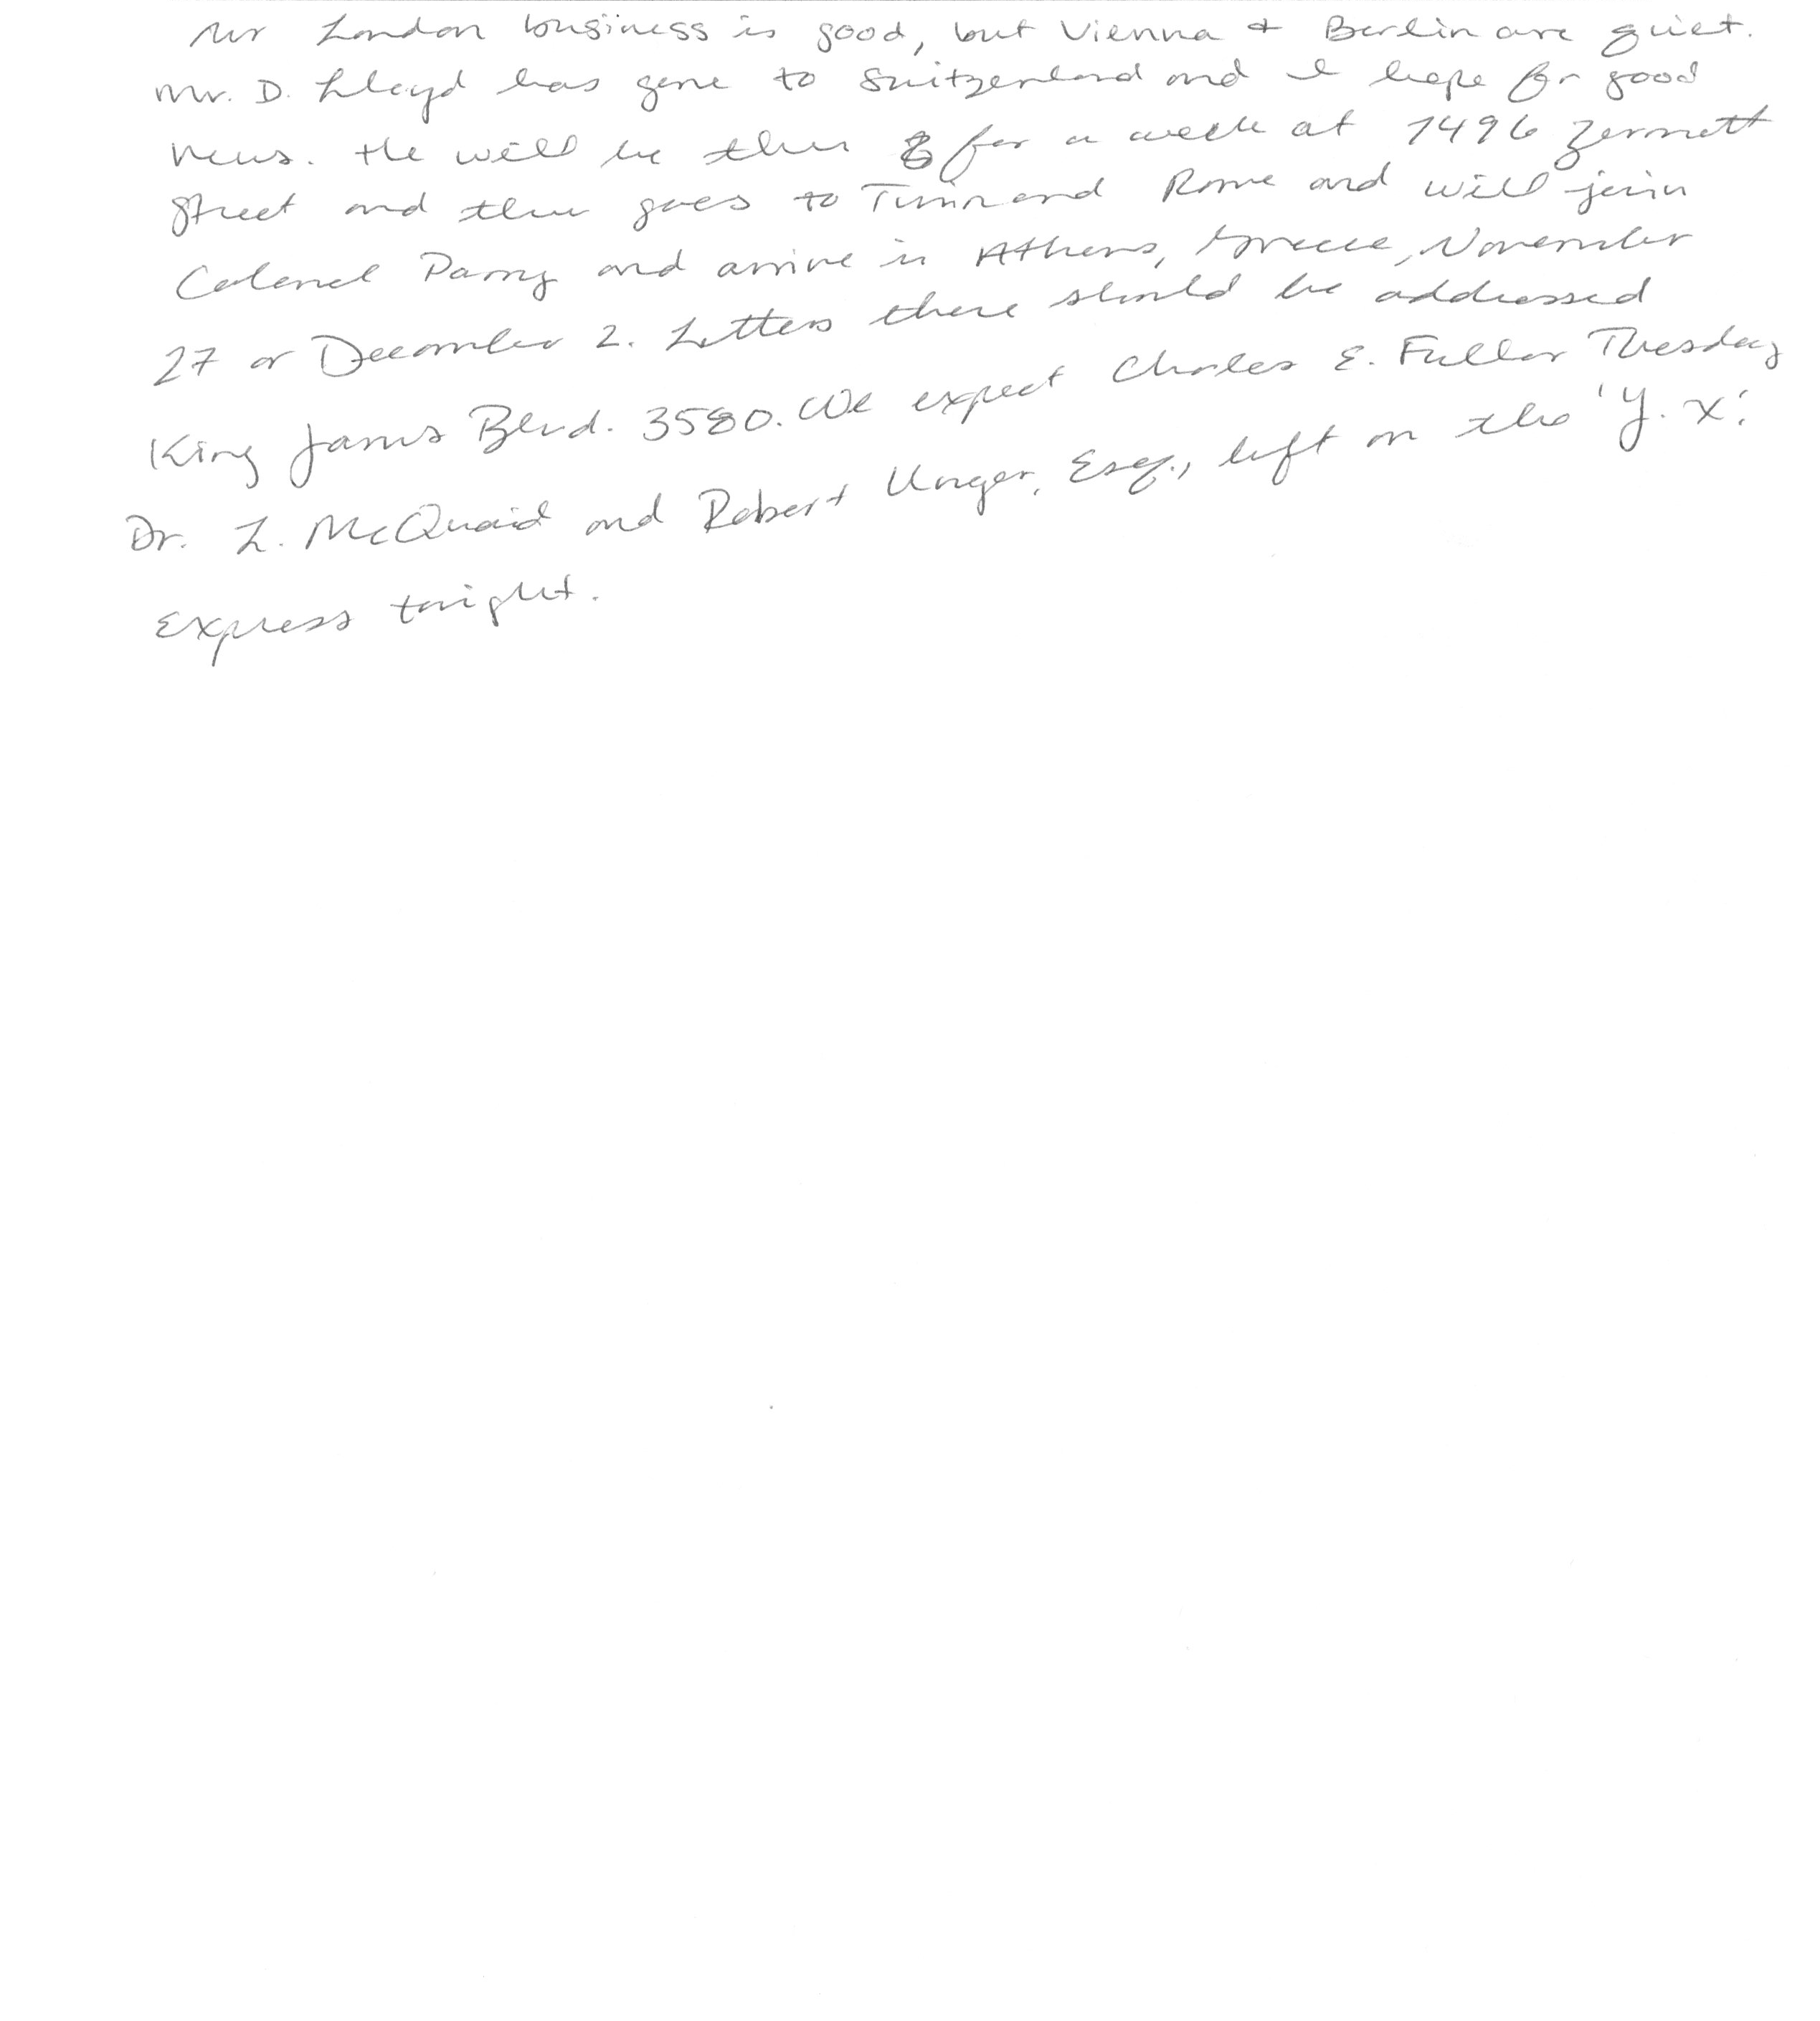 Our London business is good, but Vienna + Berlin are quiet.
Mr. D. Lloyd has gone to Switzerland and I hope for good
news. He will be there for a week at 1496 Zermott
Street and then goes to Turin and Rome and will join
Colonel Parry and arrive in Athens, Greece, November
27 or December 2. Letters there should be addressed
King James Blvd. 3580. We expect Charles E. Fuller Tuesday
Dr. L. McQuaid and Robert Unger, Esq., left on the 'Y. X.'
Express tonight.